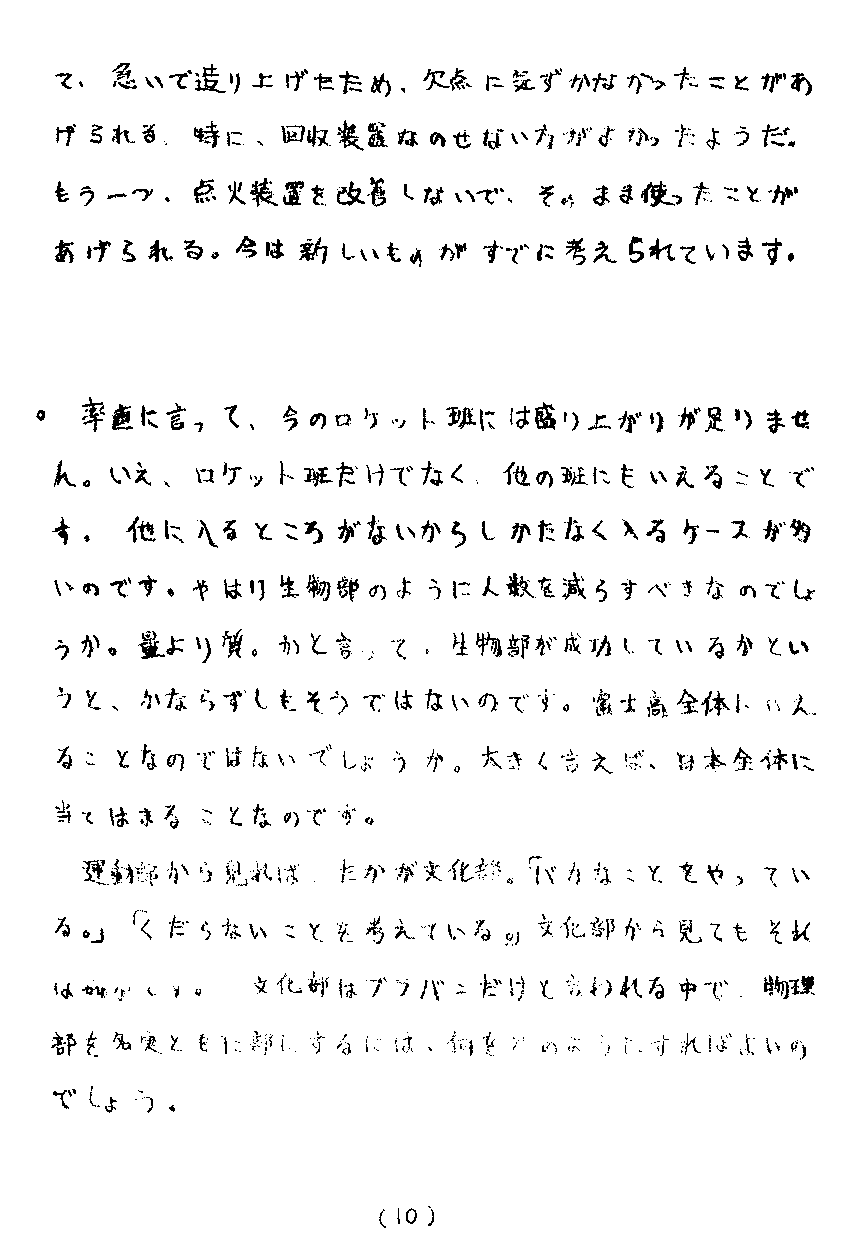 て、急いで造り上げたため、欠点に気ずかなかったことがあ
げられる。特に、回収装置なのせない方がよかったようだ。
もう一つ、点火装置を改善しないで、そのまま使ったことが
あげられる。今は新しいものがすでに考えられています。
。率直に言って、今のロケット班には盛り上がりが足りませ
ん。いえ、ロケット班だけでなく、他の班にもいえることで
す。他に入るところがないからしかたなく入るケースが多
いのです。やはり生物部のように人数を減らすべきなのでしょ
うか。量より質。かと言って、生物部が成功しているかとい
うと、かならずしもそうではないのです。富士高全体にいえ
ることなのではないでしょうか。大きく言えば、日本全体に
当てはまることなのです。
運動部から見れば、たかが文化部。「バカなことをやってい
る。」「くだらないことを考えている。」文化部から見てもそれ
は
文化部はブラバンだけと言われる中で、物理
部を名実ともに部にするには、何をどのようにすればよいの
でしょう。
(10)